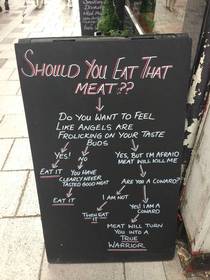 Should You Eat That
Meat??
Do You Want to Feel
Like Angels are
Frolicking on Your Taste
Buds
Yes!
No
Yes, but I'm afraid
meat will kill me
Eat it
You have
clearly never
tasted good meat
Are you a coward?
Eat it
I am not
Yes! I am a
coward
Then eat
it
Meat will turn
you into a
True
Warrior